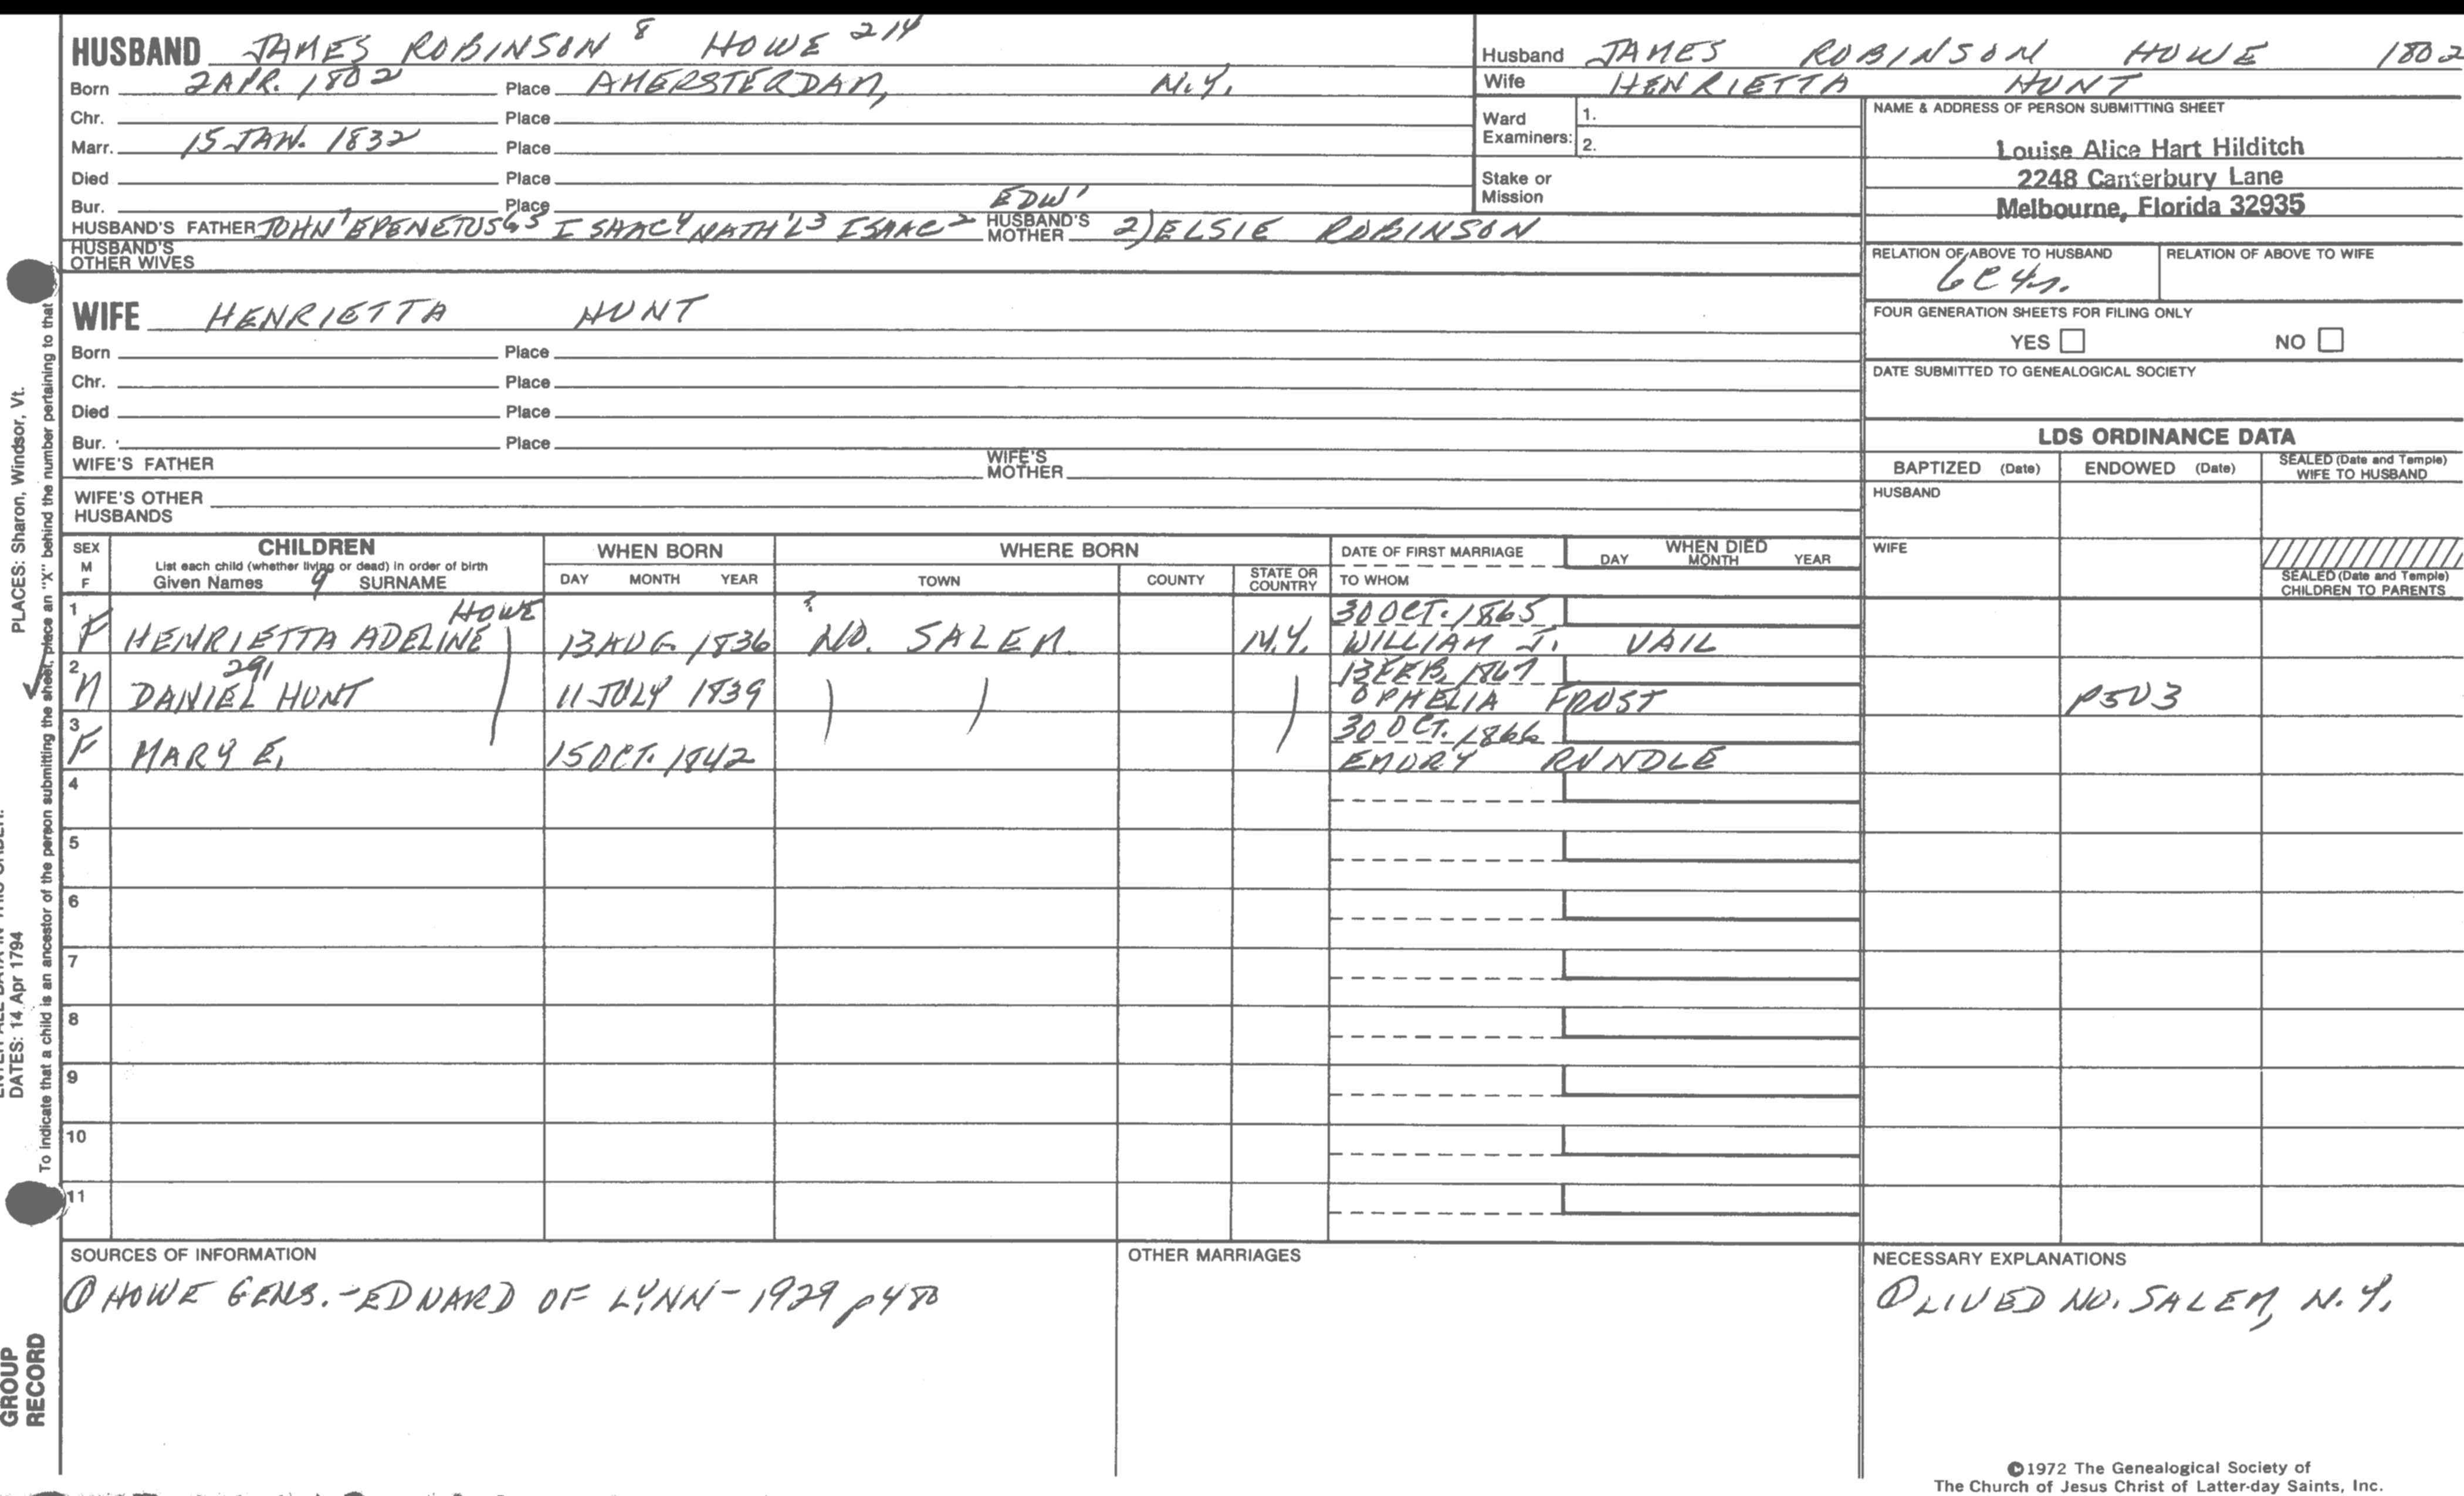 HUSBAND JAMES ROBINSON 8 HOWE 214
Born 2 APR. 1802 Place AMERSTERDAM, N.Y.
Chr. Place
Marr. 15 JAN. 1832 Place
Died Place
Bur. Place
HUSBAND'S FATHER JOHN 7 EPENETUS 6 5 ISAAC 4 NATH'L 3 ISAAC 2 EDW 1 HUSBAND'S MOTHER 2) ELSIE ROBINSON
HUSBAND'S OTHER WIVES
Husband JAMES ROBINSON HOWE 1802
Wife HENRIETTA HUNT
Ward Examiners: 1.
2.
Stake or Mission
NAME & ADDRESS OF PERSON SUBMITTING SHEET
Louise Alice Hart Hilditch
2248 Canterbury Lane
Melbourne, Florida 32935
RELATION OF ABOVE TO HUSBAND RELATION OF ABOVE TO WIFE
WIFE HENRIETTA HUNT
Born Place
Chr. Place
Died Place
Bur. Place
WIFE'S FATHER WIFE'S MOTHER
WIFE'S OTHER HUSBANDS
FOUR GENERATION SHEETS FOR FILING ONLY
YES NO
DATE SUBMITTED TO GENEALOGICAL SOCIETY
LDS ORDINANCE DATA
BAPTIZED (Date) ENDOWED (Date) SEALED (Date and Temple) WIFE TO HUSBAND
HUSBAND
WIFE
SEALED (Date and Temple) CHILDREN TO PARENTS
SEX M F
CHILDREN
List each child (whether living or dead) in order of birth
Given Names 9 SURNAME
WHEN BORN
DAY MONTH YEAR
WHERE BORN
TOWN COUNTY STATE OR COUNTRY
DATE OF FIRST MARRIAGE
TO WHOM
WHEN DIED
DAY MONTH YEAR
1 F HENRIETTA ADELINE HOWE 13 AUG 1836 ? NO. SALEM N.Y. 30 OCT. 1865 WILLIAM J. VAIL
2 M DANIEL HUNT 291 11 JULY 1839 13 FEB. 1867 OPHELIA FROST P503
3 F MARY E. 15 OCT. 1842 30 OCT. 1866 EMORY RUNDLE
4
5
6
7
8
9
10
11
SOURCES OF INFORMATION
① HOWE GENS.-EDWARD OF LYNN-1929 p480
OTHER MARRIAGES
NECESSARY EXPLANATIONS
① LIVED NO. SALEM, N.Y.
©1972 The Genealogical Society of
The Church of Jesus Christ of Latter-day Saints, Inc.
PLACES: Sharon, Windsor, Vt.
DATES: 14 Apr 1794
To indicate that a child is an ancestor of the person submitting the sheet, place an "X" behind the number pertaining to that
GROUP
RECORD